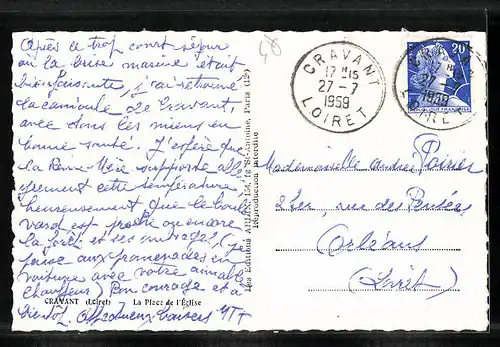 Après ce trop court séjour
où la brise marine était
bienfaisante, j'ai retrouvé
la canicule de Cravant,
avec dans les miens en
bonne santé. J'espère que
la Reine-Mère supporte allè
grement cette température
heureusement que le boule
vard est proche ou encore
la forêt et ses ombrages (je
pense aux promenades en
voiture avec votre aimable
chauffeur) Bon courage et à
bientôt. Affectueux baisers
CRAVANT (Loiret) La Place de l'Église
Paris (12e)
Reproduction interdite
48
CRAVANT
17 H15
27-7
1959
LOIRET
20F
1959
Mademoiselle Andrée Poirier
2 ter, rue des Pensées
Orléans
(Loiret)